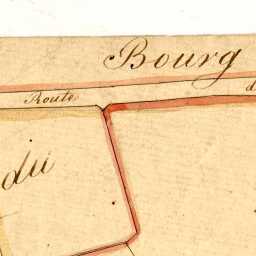 Bourg
Route d
du